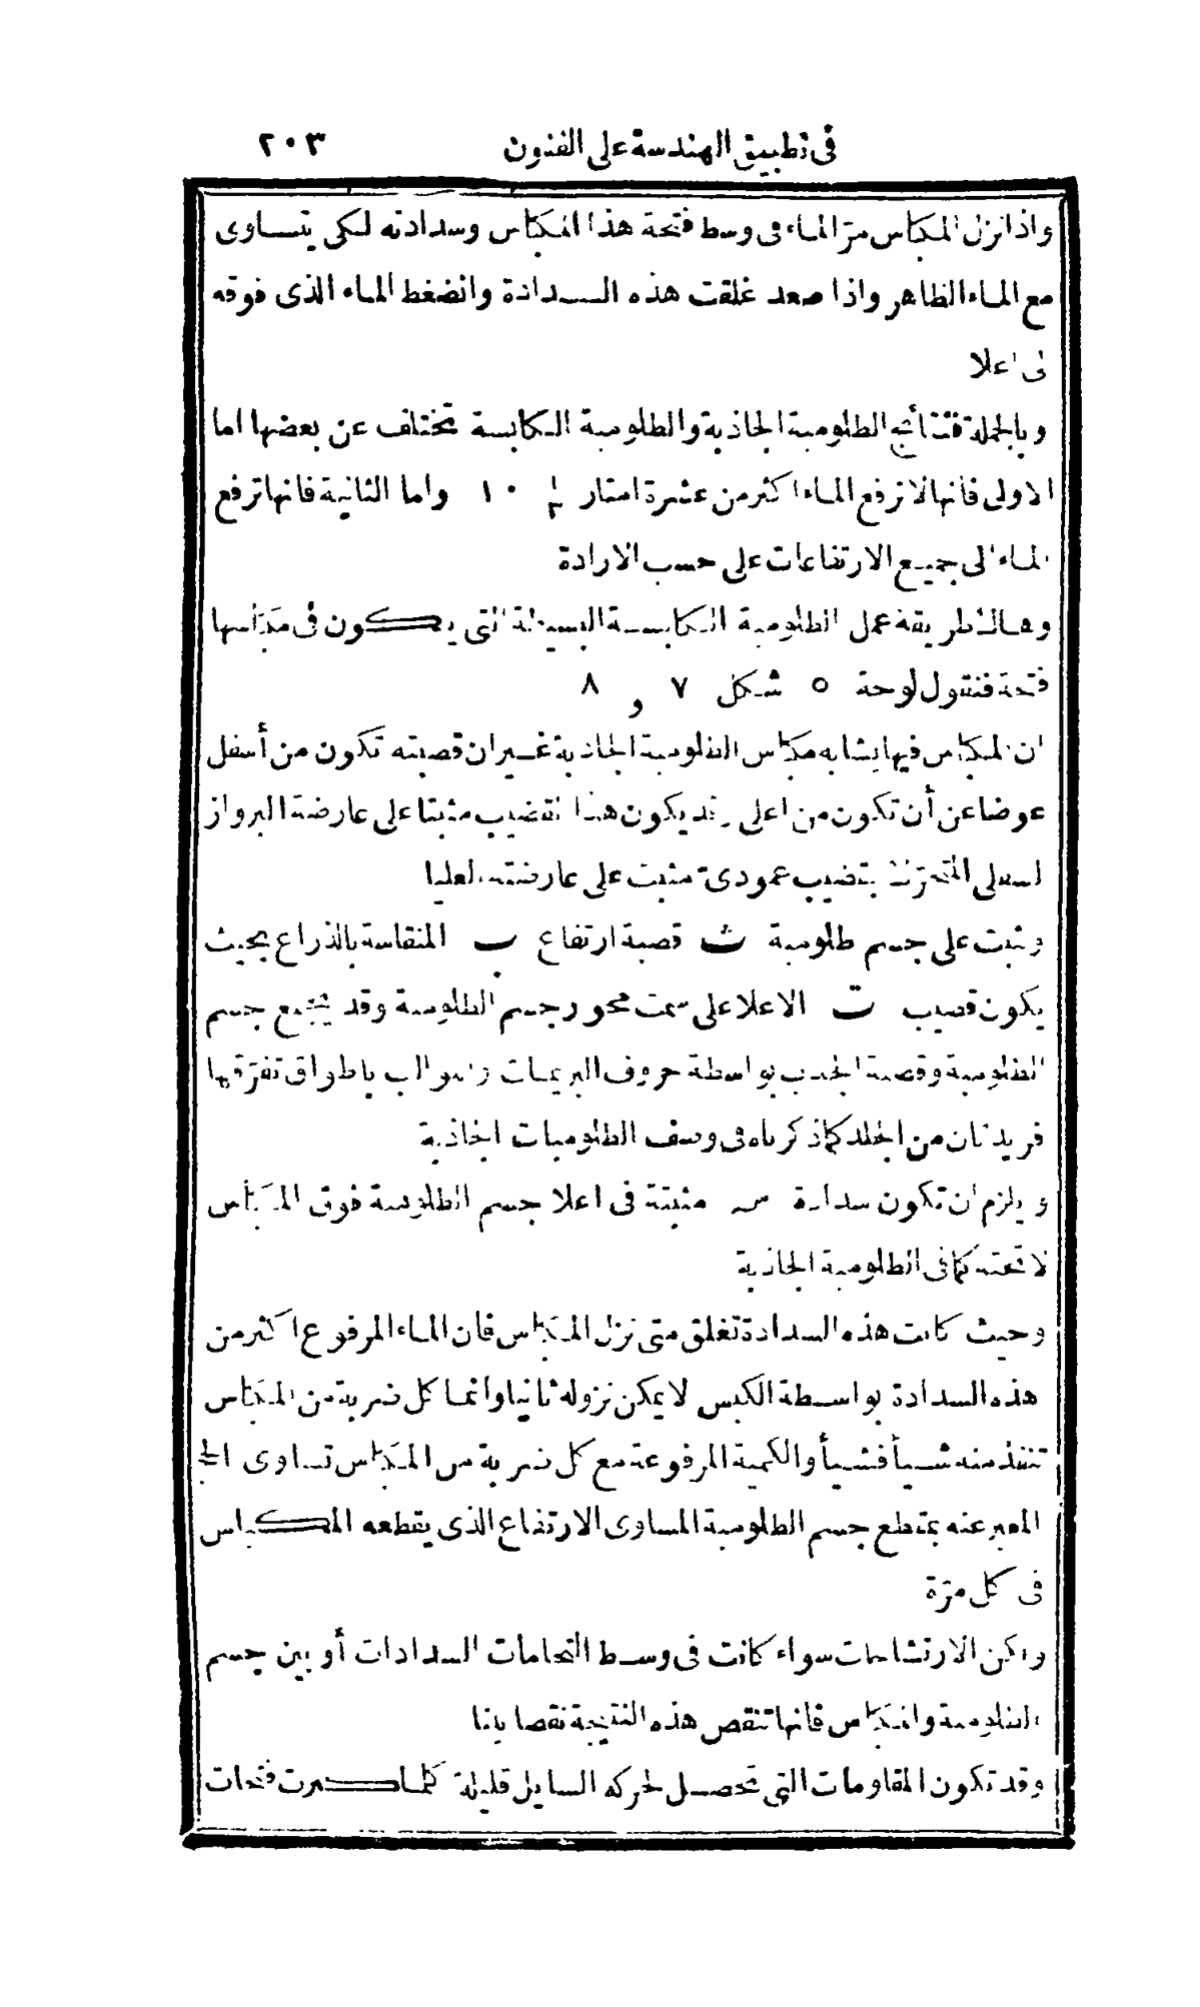 في تطبيق الهندسة على الفنون ٢٠٣
واذا نزل المكاس مرّ الماء في وسط فتحة هذا المكباس وسدادته لكى يتساوى
مع الماء الظاهر واذا صعد غلقت هذه السدادة وانضغط الماء الذى فوقه
الى اعلا
وبالجملة فنتائج الطلومبة الجاذبة والطلومبة الكابسة تختلف عن بعضها اما
الاولى فانها لا ترفع الماء اكثر من عشرة امتار ١٠ واما الثانية فانها ترفع
الماء الى جميع الارتفاعات على حسب الارادة
وهاك طريقة عمل الطلومبة الكابسة البسيطة التى يكون فى مكباسها
فتحة فنقول لوحة ٥ شكل ٧ و ٨
ان المكباس فيها يشابه مكباس الطلومبة الجاذبة غير ان قصبته تكون من أسفل
عوضا عن أن تكون من اعلى وقد يكون هذا القضيب مثبتا على عارضة البرواز
السفلى المتحرّك بقضيب عمودىّ مثبت على عارضته العليا
ويثبت على جسم طلومبة ث قصبة ارتفاع ب المنقاسة بالذراع بحيث
يكون قضيب ت الاعلا على سمت محور جسم الطلومبة وقد يجمع جسم
الطلومبة وقصبة الجذب بواسطة حروف البريمات باطواق تفرّقها
فريدتان من الجلد كما ذكرناه فى وصف الطلومبات الجاذبة
ويلزم ان تكون سدادة س مثبتة فى اعلا جسم الطلومبة فوق المكباس
لا تحته كما فى الطلومبة الجاذبة
وحيث كانت هذه السدادة تغلق متى نزل المكباس فان الماء المرفوع اكثر من
هذه السدادة بواسطة الكبس لا يمكن نزوله ثانيا وانما كل ضربة من المكباس
تنفذ منه شيأ فشيأ والكمية المرفوعة مع كل ضربة من المكباس تساوى الح
المعبر عنه بمقطع جسم الطلومبة المساوى الارتفاع الذى يقطعه المكباس
فى كل مرّة
ولكن الارتشاحات سواء كانت فى وسط التحامات السدادات أو بين جسم
الطلومبة والمكباس فانها تنقص هذه النتيجة نقصا بانا
وقد تكون المقاومات التى تحصل لحركه السايل قليلة كلما كبرت فتحات